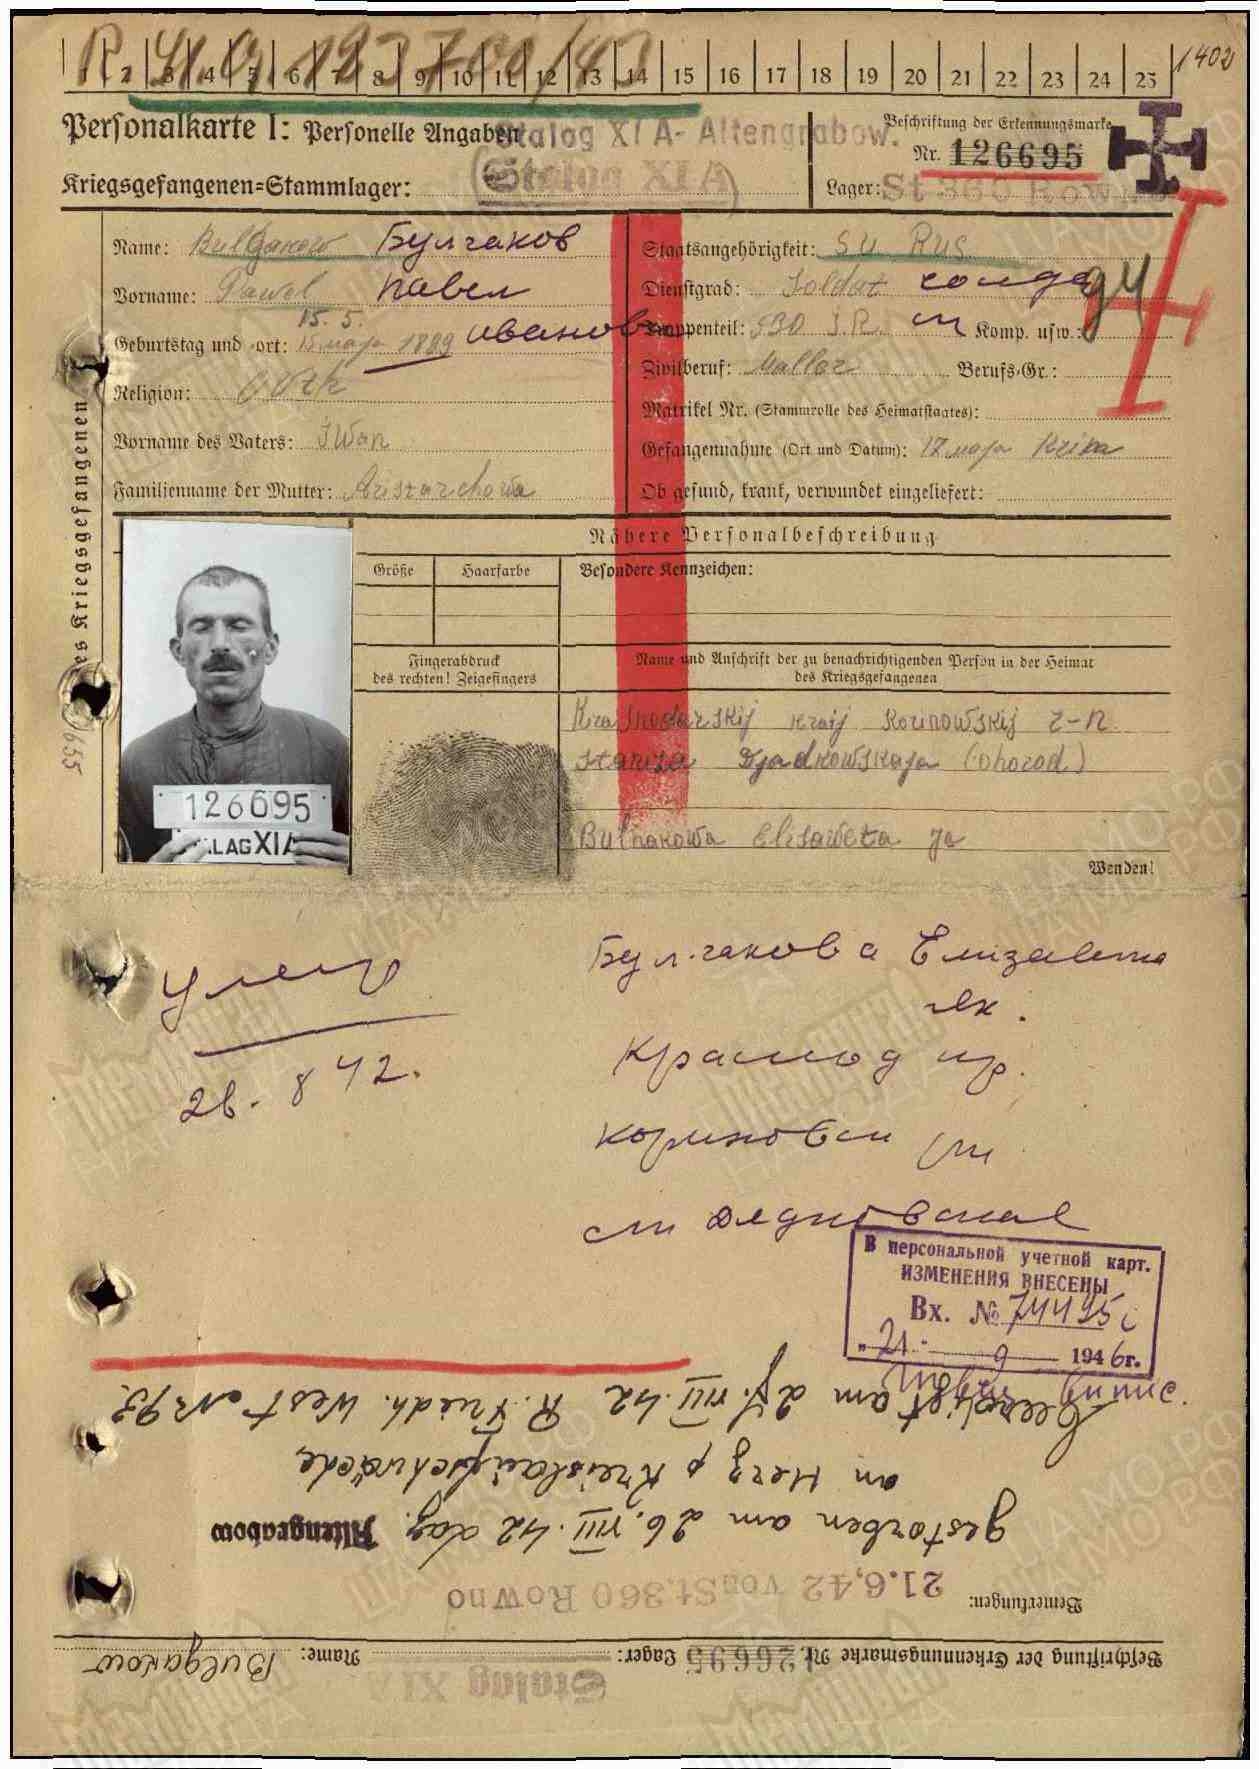 R. 41.0. 123700/43
1 2 3 4 5 6 7 8 9 10 11 12 13 14 15 16 17 18 19 20 21 22 23 24 25
1402
Personalkarte I: Personelle Angaben
Stalag XI A - Altengrabow.
Beschriftung der Erkennungsmarke
Nr. 126695
Kriegsgefangenen-Stammlager: (Stalag XI A)
Lager: St 360 Rowno
Name: Bulgakow Булгаков
Vorname: Pawel Павел
15. 5.
Geburtstag und -ort: 15 maja 1889 Иванов
Religion: O
Vorname des Vaters: Iwan
Familienname der Mutter: Aristarchowa
Staatsangehörigkeit: SU Rus
Dienstgrad: Soldat солда
Truppenteil: 530 I.R. Komp. usw.:
Zivilberuf: Berufs-Gr.:
Matrikel Nr. (Stammrolle des Heimatstaates):
Gefangennahme (Ort und Datum): 17 maja
Ob gesund, krank, verwundet eingeliefert:
des Kriegsgefangenen
Nähere Personalbeschreibung
Größe
Haarfarbe
Besondere Kennzeichen:
Fingerabdruck
des rechten! Zeigefingers
Name und Anschrift der zu benachrichtigenden Person in der Heimat
des Kriegsgefangenen
Krasnodarskij kraij Korinowskij r-n
staniza Djadkowskaja
Bulhakowa Elisaweta Ja
Wenden!
126695
LAG XI A
Булгакова Елизавета
Як.
Краснод кр.
Кориновски
ст Дядковская
Умер
26. 8 42.
В персональной учетной карт.
ИЗМЕНЕНИЯ ВНЕСЕНЫ
Вх. № 74495
„21" 9 1946г.
Beerdigt am 27. VIII. 42 R. Friedh. West Nr 93.
an Herz p Kreislaufschwäche
gestorben am 26. VIII. 42 Lag. Altengrabow
Bemerkungen: 21.6.42 von St. 360 Rowno
Beschriftung der Erkennungsmarke Nr. 126695 Lager: Stalag XI A Name: Bulgakow